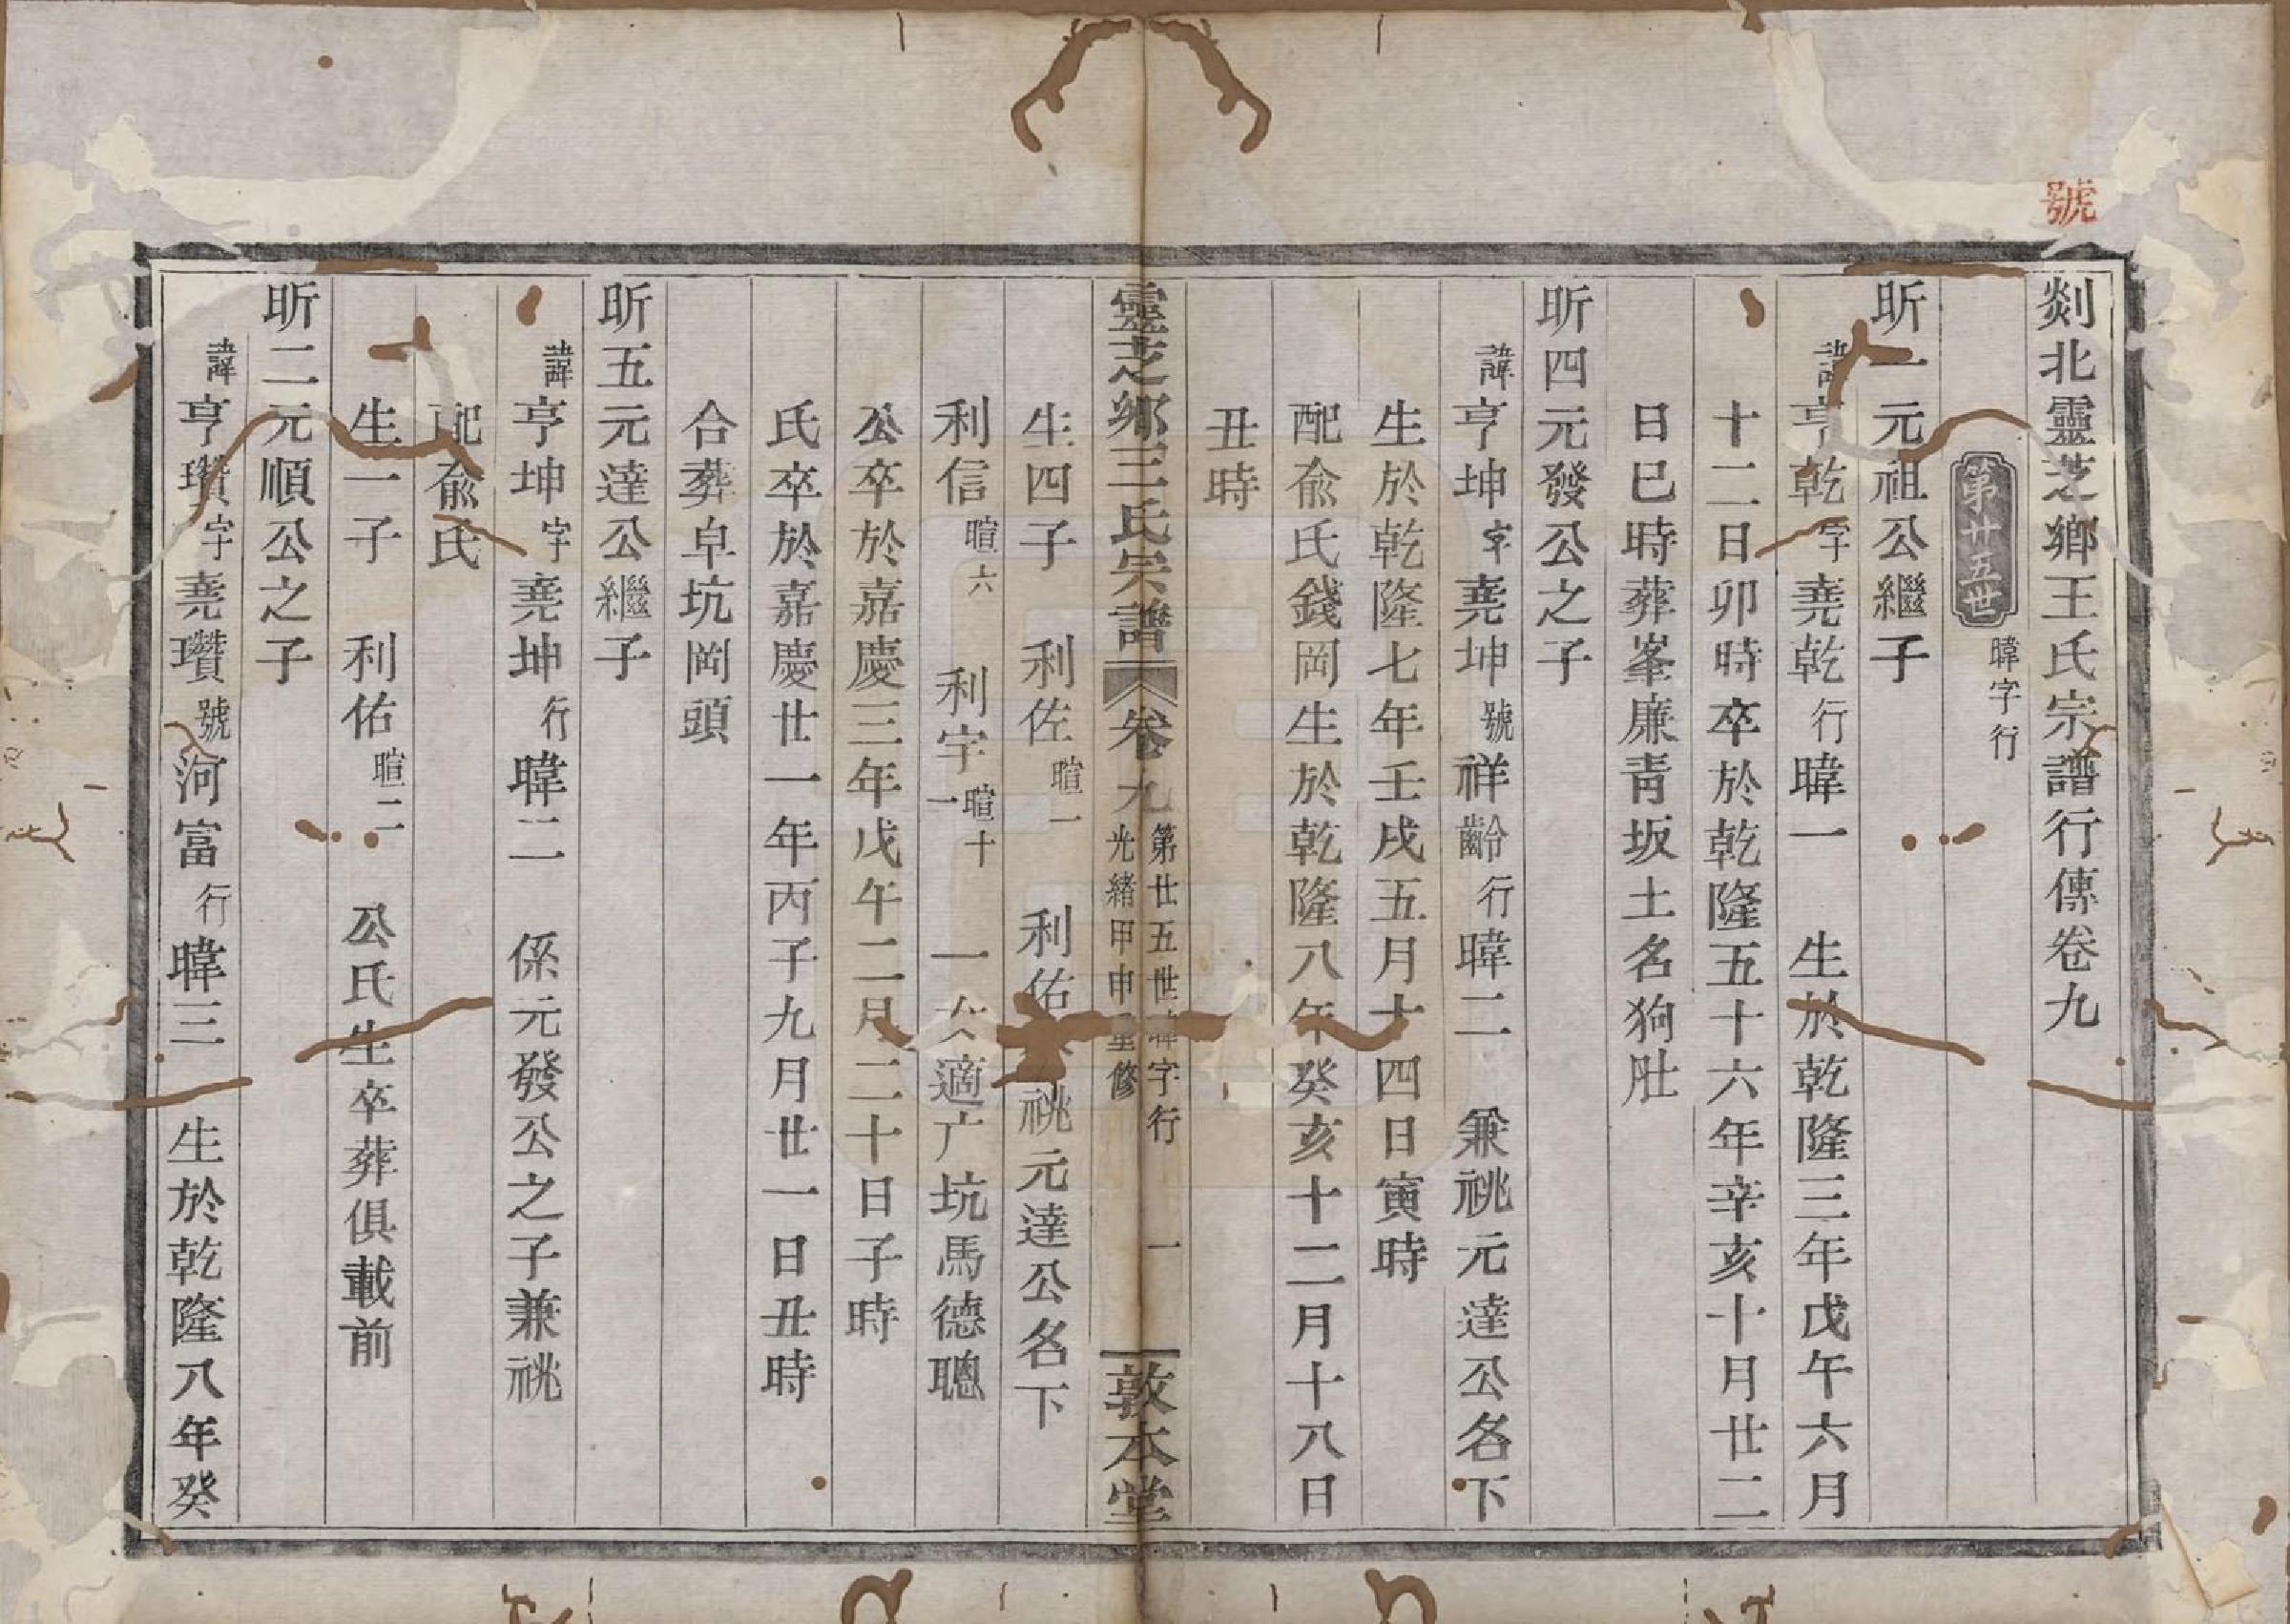 號
剡北靈芝鄉王氏宗譜行傳卷九
第廿五世 暐字行
昕一元祖公繼子
諱亨乾字堯乾行暐一 生於乾隆三年戊午六月
十二日卯時卒於乾隆五十六年辛亥十月廿二
日巳時葬峯廉靑坂土名狗肚
昕四元發公之子
諱亨坤字堯坤號祥齡行暐二 兼祧元達公名下
生於乾隆七年壬戌五月十四日寅時
配俞氏錢岡生於乾隆八年癸亥十二月十八日
丑時
靈芝鄉王氏宗譜 卷九 第廿五世暐字行 一 敦本堂
光緒甲申重修
生四子 利佐暄一 利佑 祧元達公名下
利信暄六 利宇暄十一 一女適广坑馬德聰
公卒於嘉慶三年戊午二月二十日子時
氏卒於嘉慶廿一年丙子九月廿一日丑時
合葬皁坑岡頭
昕五元達公繼子
諱亨坤字堯坤行暐二 係元發公之子兼祧
配俞氏
生一子 利佑暄二 公氏生卒葬俱載前
昕二元順公之子
諱亨瓚字堯瓚號河富行暐三 生於乾隆八年癸